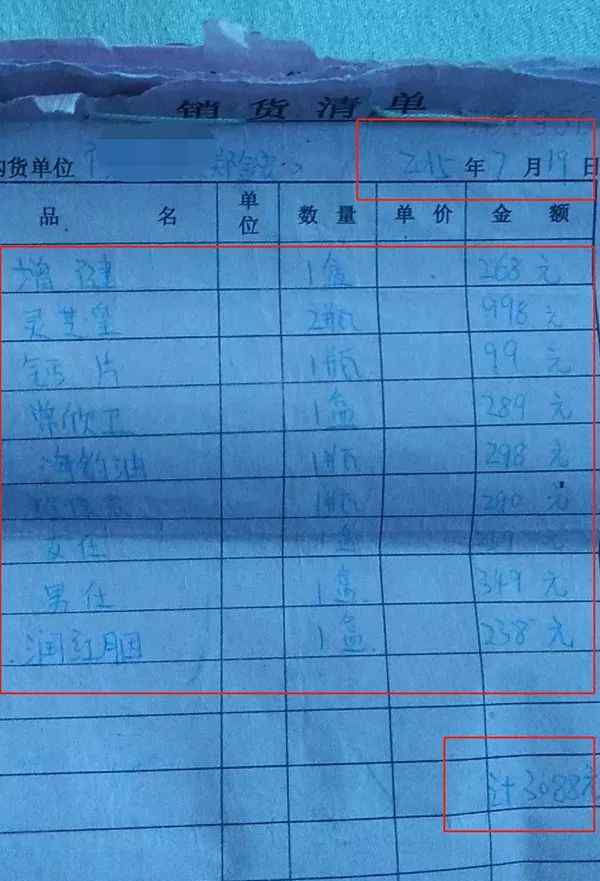 销货清单
购货单位 2015年7月19日
品名 单位 数量 单价 金额
增健 1盒 268元
灵芝皇 2瓶 998元
钙片 1瓶 99元
常欣卫 1盒 289元
海狗油 1瓶 298元
1瓶 290元
女仕 1盒 元
男仕 1盒 349元
润红胭 1盒 238元
计3088元